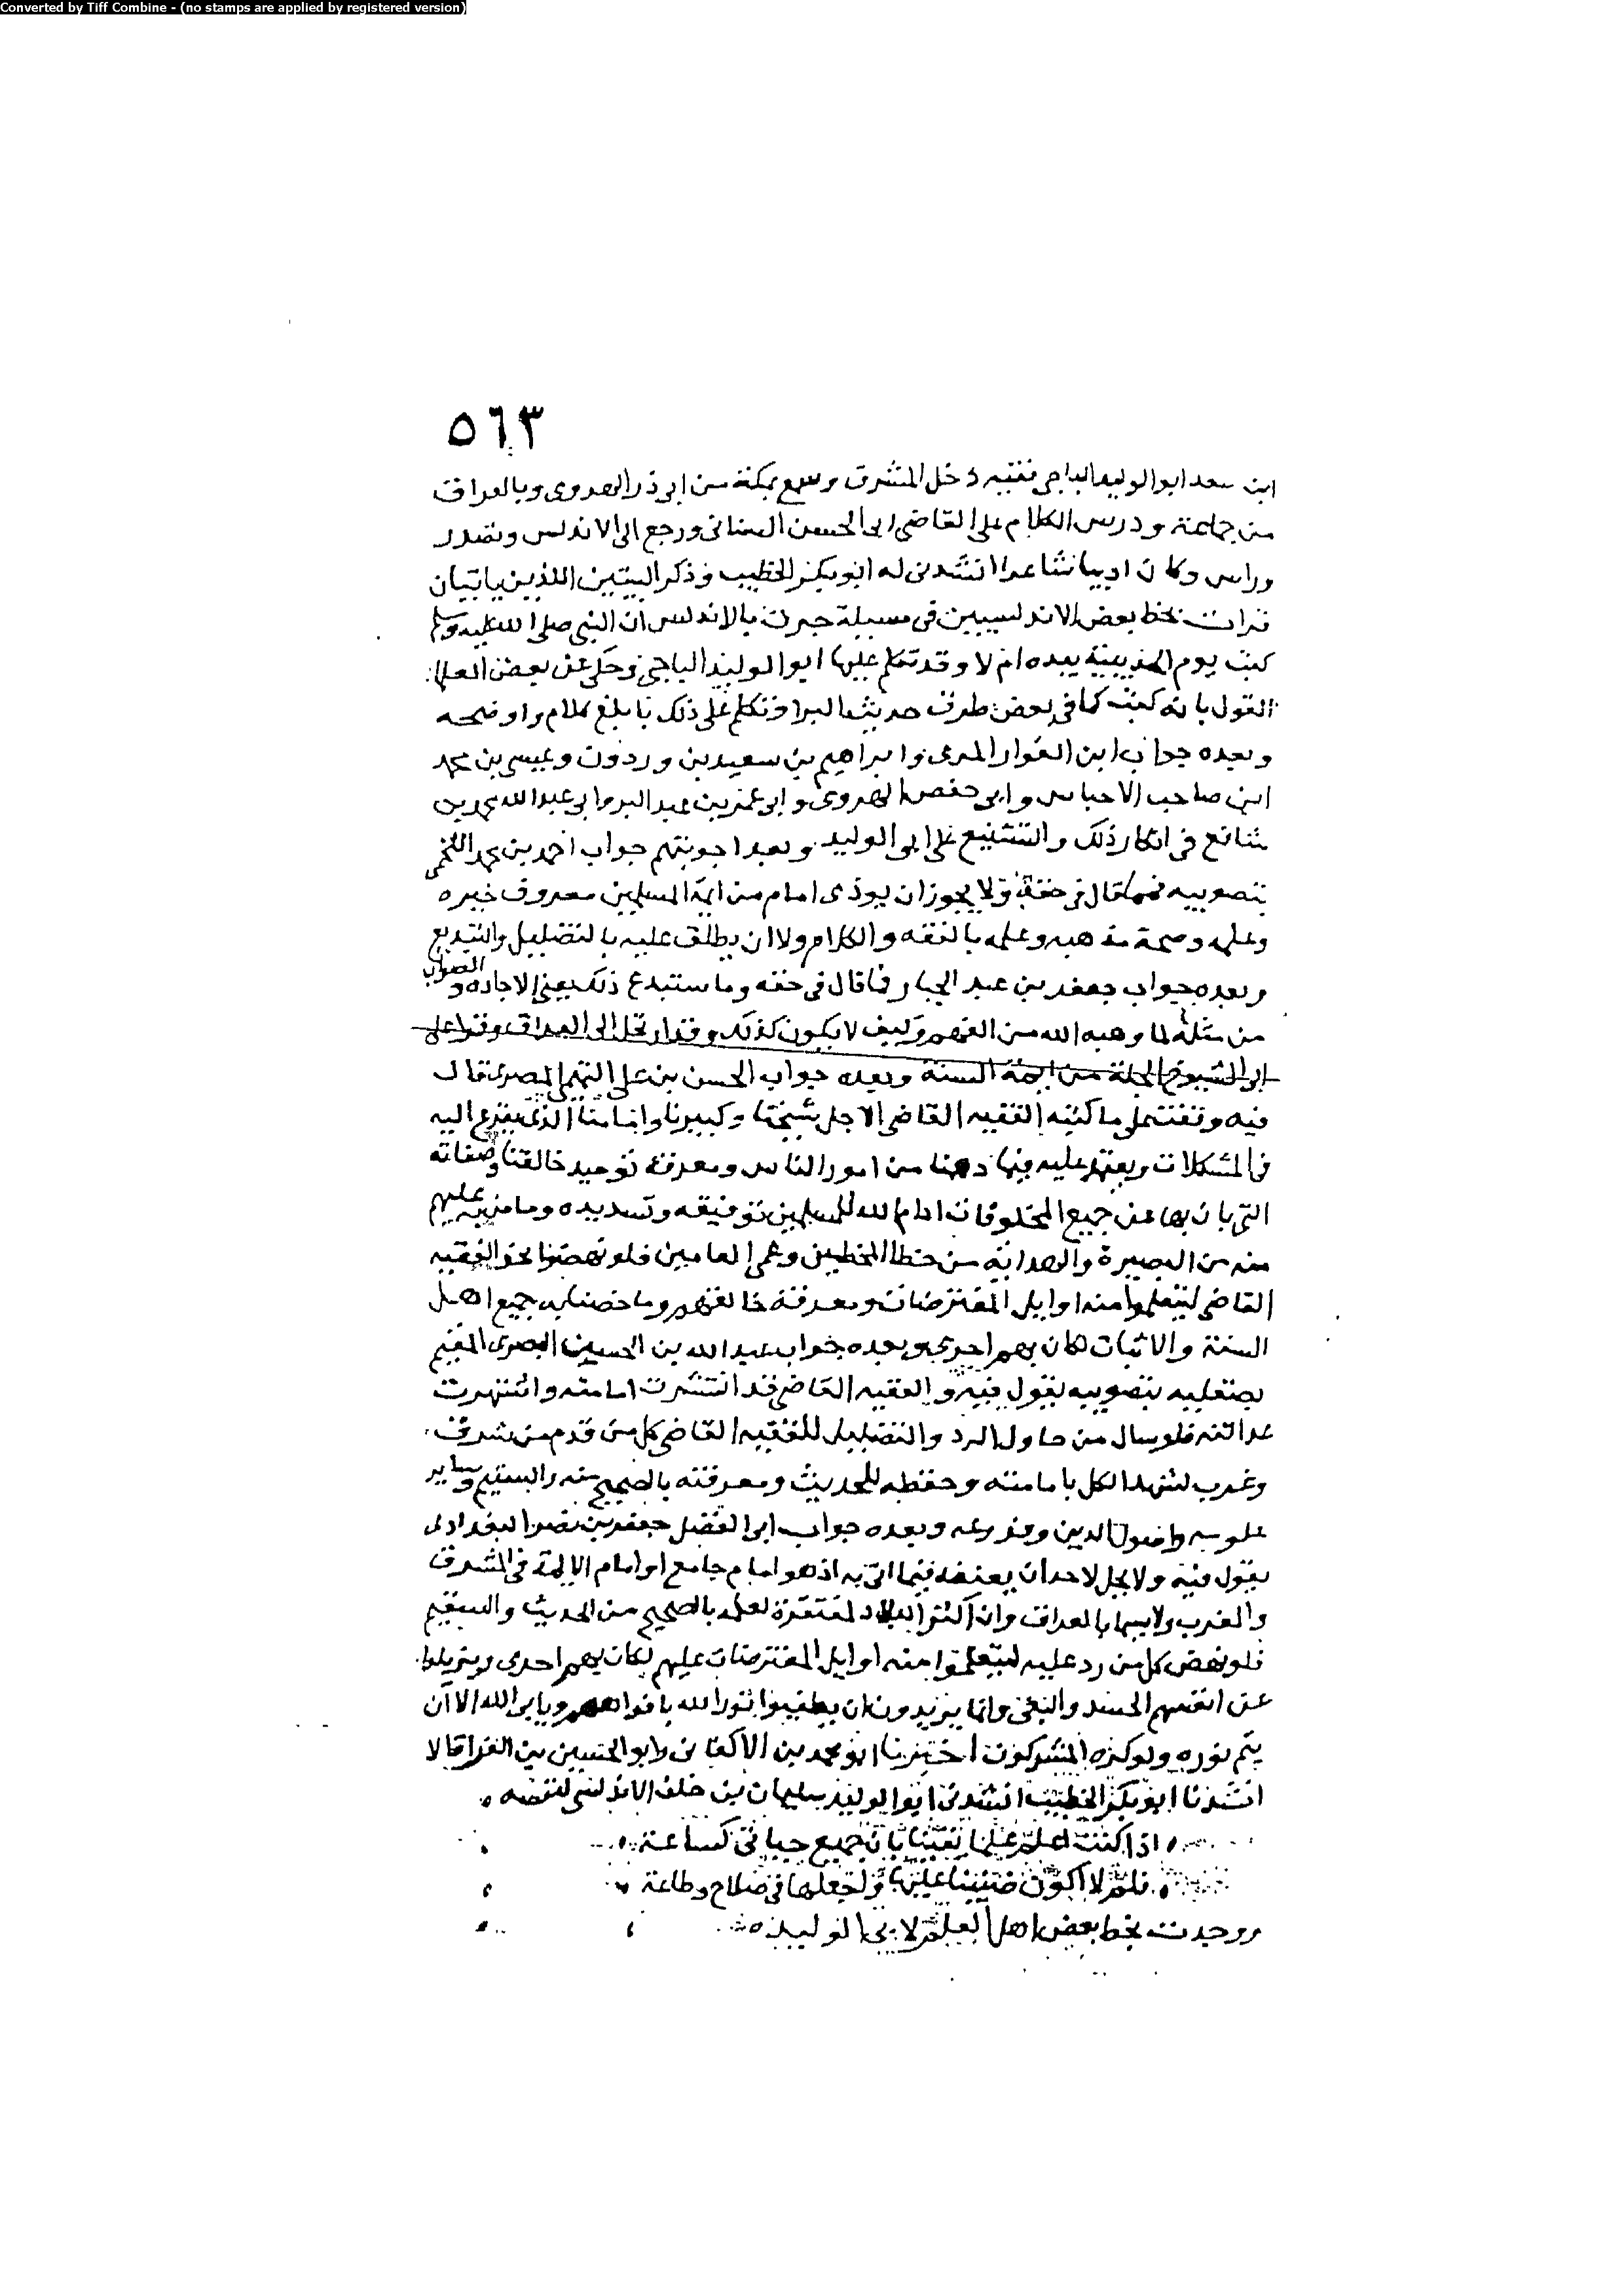 Converted by Tiff Combine - (no stamps are applied by registered version)
٥٦٣
ابن سعد ابو الوليد الباجى فقيه دخل المشرق وسمع بمكة من ابى ذر الهروى وبالعراق
من جماعة ودرس الكلام على القاضى ابى الحسن السمنانى ورجع الى الاندلس وتصدر
وراس وكان اديبا شاعرا انشدنى له ابو بكر الخطيب وذكر البيتين اللذين ياتيان
قرات بخط بعض الاندلسيين فى مسيلة جرت بالاندلس ان النبى صلى الله عليه وسلم
كتب يوم الحديبية بيده ام لا وقد تكلم عليها ابو الوليد الباجى وحكى عن بعض العلما
القول بانه كتب كما فى بعض طرق حديث البرا وتكلم على ذلك بابلغ كلام واوضحه
وبعده جواب ابن العوار المرى وابراهيم بن سعيد بن وردون وعيسى بن محمد
ابن صاحب الاحباس وابى حفص الهروى وابى عمر بن عبد البر وابى عبد الله محمد بن
شائع فى انكار ذلك والتشنيع على ابى الوليد وبعد اجوبتهم جواب احمد بن محمد اللخمى
بتصويبه فمما قال فى حقه ولا يجوز ان يوذى امام من ايمة المسلمين معروف خيره
وعلمه وصحة مذهبه وعلمه بالفقه والكلام ولا ان يطلق عليه بالتضليل والتبديع
وبعده جواب جعفر بن عبد الجبار فما قال فى حقه وما ستبدع ذلك يعنى الاجادة والصواب
من مثله لما وهبه الله من الفهم وكيف لا يكون كذلك وقد ارتحل الى العراق وقرا على
ابى الشيوخ الجلة من ايمة السنة وبعده جواب الحسن بن على التميمى المصرى قال
فيه وقفت على ما كتبه الفقيه القاضى الاجل شيخنا وكبيرنا وامامنا الذى يفزع اليه
فى المشكلات ويعتمد عليه فيما دهمنا من امور الناس ومعرفة توحيد خالقنا وصفاته
التى بان بها عن جميع المخلوقات ادام الله للمسلمين توفيقه وتسديده وما من به عليهم
منه من البصيرة والهداية من خطا المخطيين وعمى العامين فلو نهضوا نحو الفقيه
القاضى ليتعلموا منه اوايل المفترضات ومعرفة خالقهم وما خصنا به جميع اهل
السنة والاثبات لكان بهم احرى وبعده جواب عبد الله بن الحسين البصرى المقيم
بصقليه بتصويبه يقول فيه والفقيه القاضى قد انتشرت امامته واشتهرت
عدالته فلو سال من حاول الرد والتضليل للفقيه القاضى كل من قدم من شرق
وغرب لشهد الكل بامامته وحفظه للحديث ومعرفته بالصحيح منه والسقيم وساير
علومه واصول الدين وفروعه وبعده جواب ابى الفضل جعفر بن نصر البغدادى
يقول فيه ولا يحل لاحد ان يعنفه فيما اتى به اذ هو امام جامع او امام الايمة فى المشرق
والمغرب ولا سيما بالعراق وان اكثر البلاد لمفتقرة لعلمه بالصحيح من الحديث والسقيم
فلو نهض كل من رد عليه ليتعلموا منه اوايل المفترضات عليهم لكان بهم احرى ويزيلوا
عن انفسهم الحسد والبغى وانما يريدون ان يطفيوا نور الله بافواههم ويابى الله الا ان
يتم نوره ولو كره المشركون اخبرنا ابو محمد بن الاكفانى وابو الحسين بن الفرا قالا
انشدنا ابو بكر الخطيب انشدنى ابو الوليد سليمان بن خلف الاندلسى لنفسه
اذا كنت اعلم علما يقينا بان جميع حياتى كساعة
فلم لا اكون ضنينا عليها واجعلها فى صلاح وطاعة
ووجدت بخط بعض اهل العلم لابى الوليد